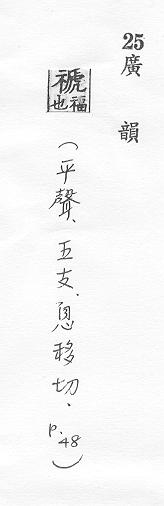 25廣韻
禠福也
(平聲、五支、息移切.p.48)